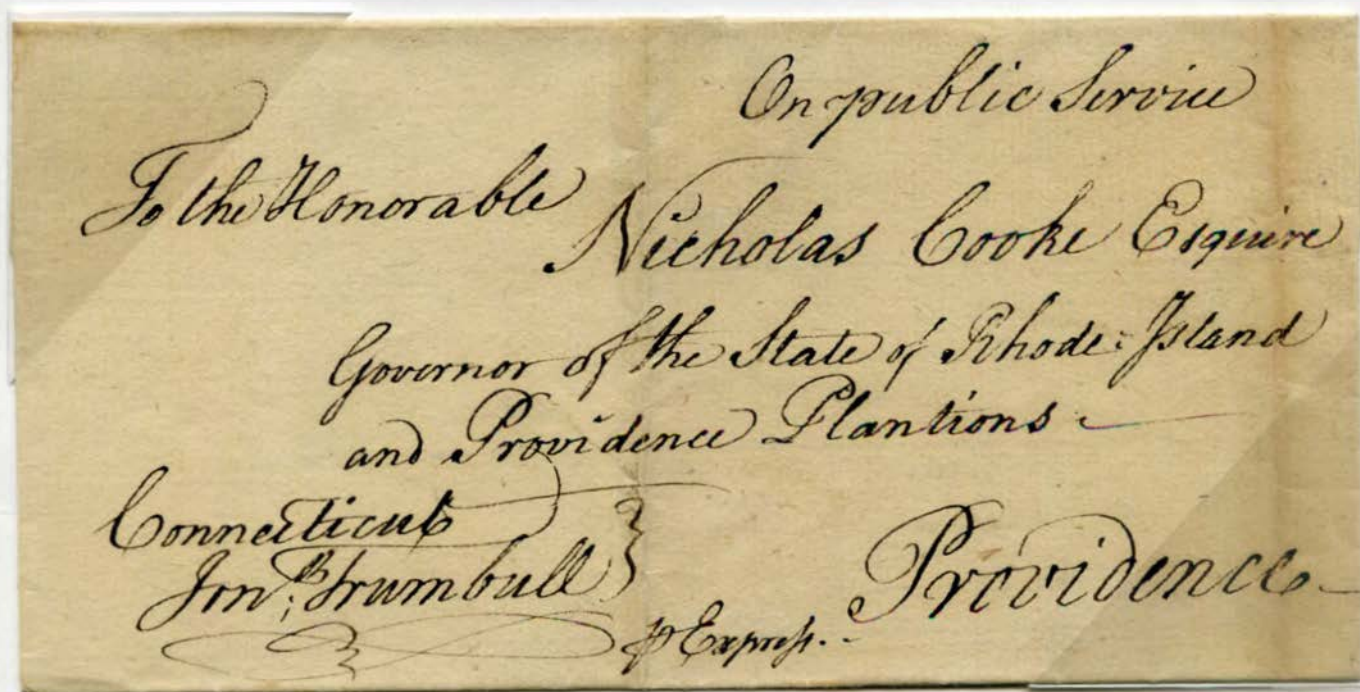 On public Service
To the Honorable
Nicholas Cooke Esquire
Governor of the State of Rhode-Island
and Providence Plantions
Connecticut
Jonth: Trumbull
Providence
⅌ Express.